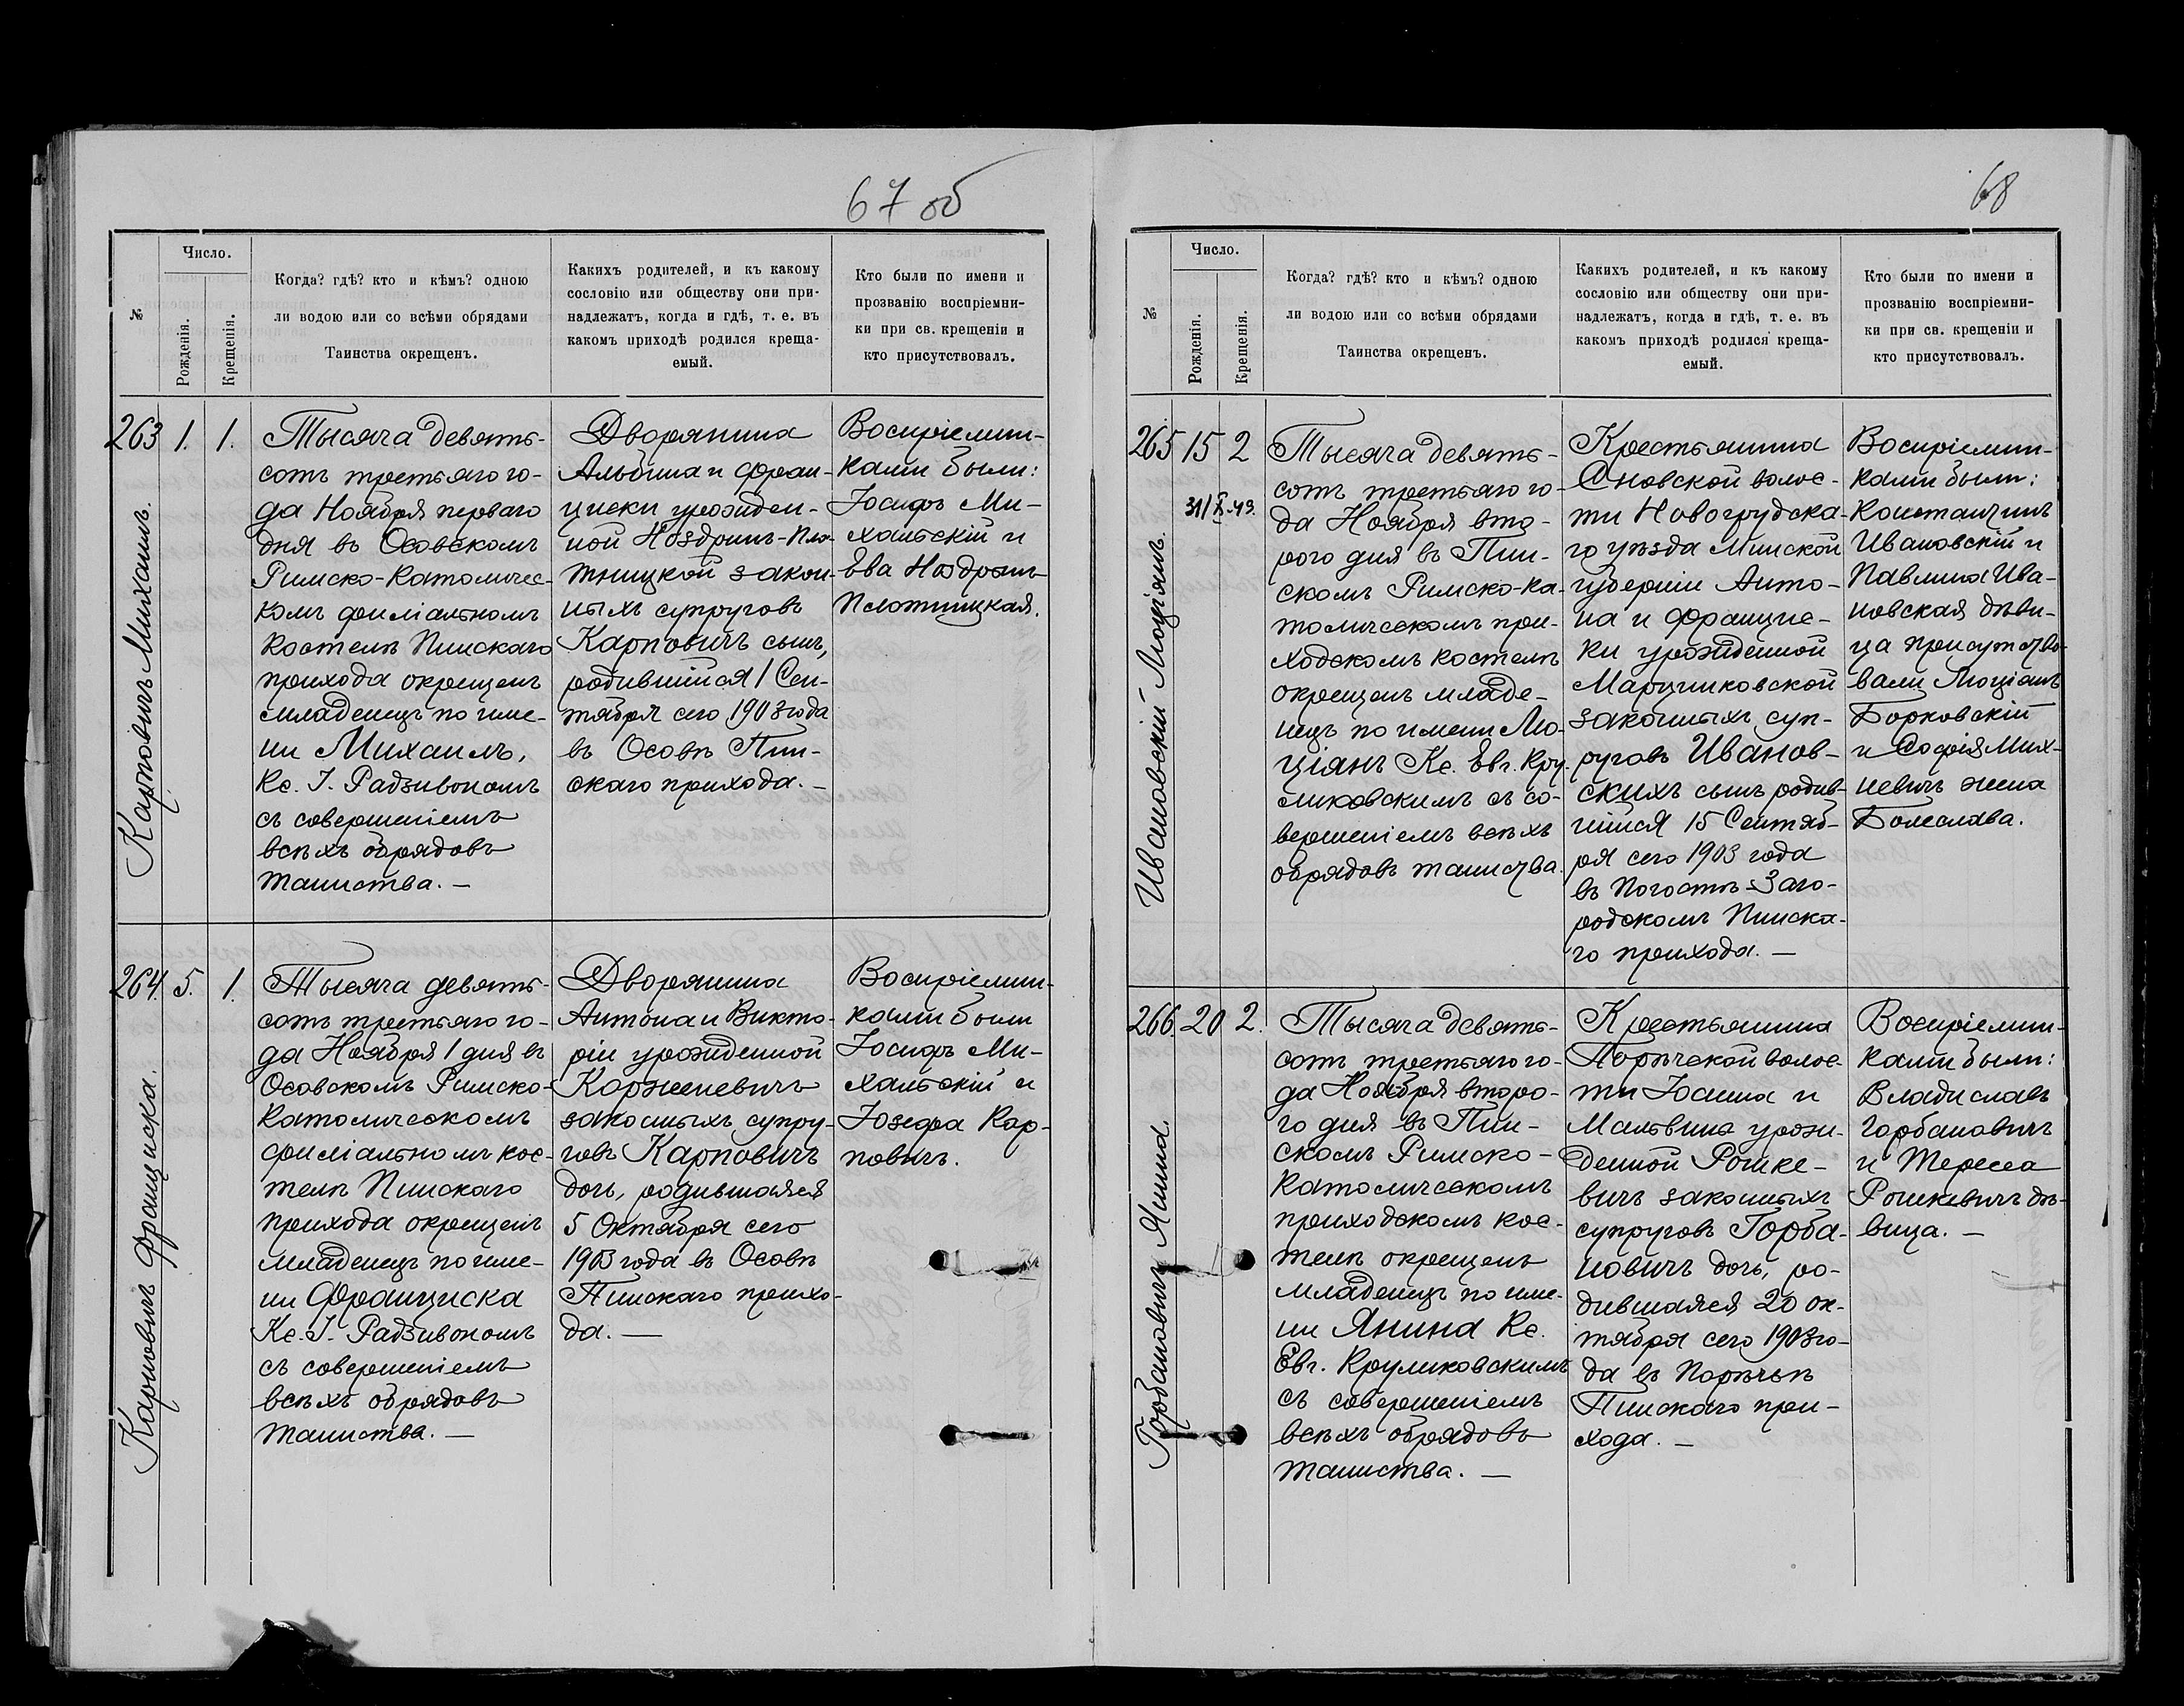 67 об
№
Число.
Рожденія.
Крещенія.
Когда? гдѣ? кто и кѣмъ? одною
ли водою или со всѣми обрядами
Таинства окрещенъ.
Какихъ родителей, и къ какому
сословію или обществу они при-
надлежатъ, когда и гдѣ, т. е. въ
какомъ приходѣ родился креща-
емый.
Кто были по имени и
прозванію воспріемни-
ки при св. крещеніи и
кто присутствовалъ.
263 1. 1.
Карповичъ Михаилъ.
Тысяча девять-
сотъ третьяго го-
да Ноября перваго
дня въ Осовскомъ
Римско-Католичес-
комъ филіальномъ
костелѣ Пинскаго
прихода окрещенъ
младенецъ по име-
ни Михаилъ,
Кс. І. Радзивономъ
съ совершеніемъ
всѣхъ обрядовъ
таинства. —
Дворянина
Альбина и Фран-
циски урожден-
ной Ноздринъ-Пло-
тницкой закон-
ныхъ супруговъ
Карповичъ сынъ,
родившійся 1 Сен-
тября сего 1903 года
въ Осовѣ Пин-
скаго прихода. —
Воспріемни-
ками были:
Іосифъ Ми-
хальскій и
Ева Ноздринъ
Плотницкая.
264. 5. 1.
Карповичъ Франциска.
Тысяча девять-
сотъ третьяго го-
да Ноября 1 дня въ
Осовскомъ Римско-
Католическомъ
филіальномъ кос-
телѣ Пинскаго
прихода окрещенъ
младенецъ по име-
ни Франциска
Кс. І. Радзивономъ
съ совершеніемъ
всѣхъ обрядовъ
таинства. —
Дворянина
Антона и Викто-
ріи урожденной
Корженевичъ
законныхъ супру-
говъ Карповичъ
дочь, родившаяся
5 Октября сего
1903 года въ Осовѣ
Пинскаго прихо-
да. —
Воспріемни-
ками были
Іосифъ Ми-
хальскій и
Юзефа Кар-
повичъ.
68
№
Число.
Рожденія.
Крещенія.
Когда? гдѣ? кто и кѣмъ? одною
ли водою или со всѣми обрядами
Таинства окрещенъ.
Какихъ родителей, и къ какому
сословію или обществу они при-
надлежатъ, когда и гдѣ, т. е. въ
какомъ приходѣ родился креща-
емый.
Кто были по имени и
прозванію воспріемни-
ки при св. крещеніи и
кто присутствовалъ.
265 15 2
31/X-43.
Ивановскій Люціянъ.
Тысяча девять-
сотъ третьяго го-
да Ноября вто-
рого дня въ Пин-
скомъ Римско-Ка-
толическомъ при-
ходскомъ костелѣ
окрещенъ младе-
нецъ по имени Лю-
ціянъ Кс. Евг. Кру-
ликовскимъ съ со-
вершеніемъ всѣхъ
обрядовъ таинства.
Крестьянина
Сновской волос-
ти Новогрудска-
го уѣзда Минской
губерніи Анто-
на и Францис-
ки урожденной
Марцинковской
законныхъ суп-
руговъ Иванов-
скихъ сынъ родив-
шійся 15 Сентяб-
ря сего 1903 года
въ Погостѣ-Заго-
родскомъ Пинска-
го прихода. —
Воспріемни-
ками были:
Константинъ
Ивановскій и
Павлина Ива-
новская дѣви-
ца присутство-
вали Люціанъ
Борковскій
и Софія Мих-
невичъ жена
Болеслава.
266. 20 2.
Горбановичъ Янина.
Тысяча девять-
сотъ третьяго го-
да Ноября второ-
го дня въ Пин-
скомъ Римско-
Католическомъ
приходскомъ кос-
телѣ окрещенъ
младенецъ по име-
ни Янина Кс.
Евг. Круликовскимъ
съ совершеніемъ
всѣхъ обрядовъ
таинства. —
Крестьянина
Порѣчской волос-
ти Іоанна и
Мальвины урож-
денной Рошке-
вичъ законныхъ
супруговъ Горба-
новичъ дочь, ро-
дившаяся 20 ок-
тября сего 1903 го-
да въ Порѣчьѣ
Пинскаго при-
хода. —
Воспріемни-
ками были:
Владиславъ
Горбановичъ
и Тереса
Рошкевичъ дѣ-
вица. —